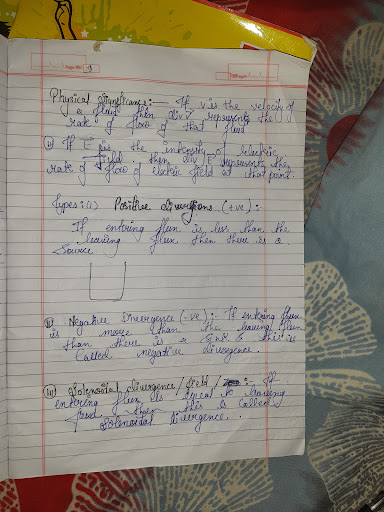 Page No. 9
Physical significance :— If v is the velocity of
a fluid then div v represents the
rate of flow of that fluid
(ii) If E is the intensity of electric
field. then div E represents then
rate of flow of electric field at that point.
Types:(i) Positive divergions (+ve):
If entering flux is less than the
leaving flux then there is a
Source
ii) Negative Divergence (-ve):- If entering flux
is more than the leaving flux
than there is a & this is
Called negative divergence.
(iii) Solenoidal divergence/field/ :- If
entering flux is equal to leaving
then this is called
Solenoidal Divergence.